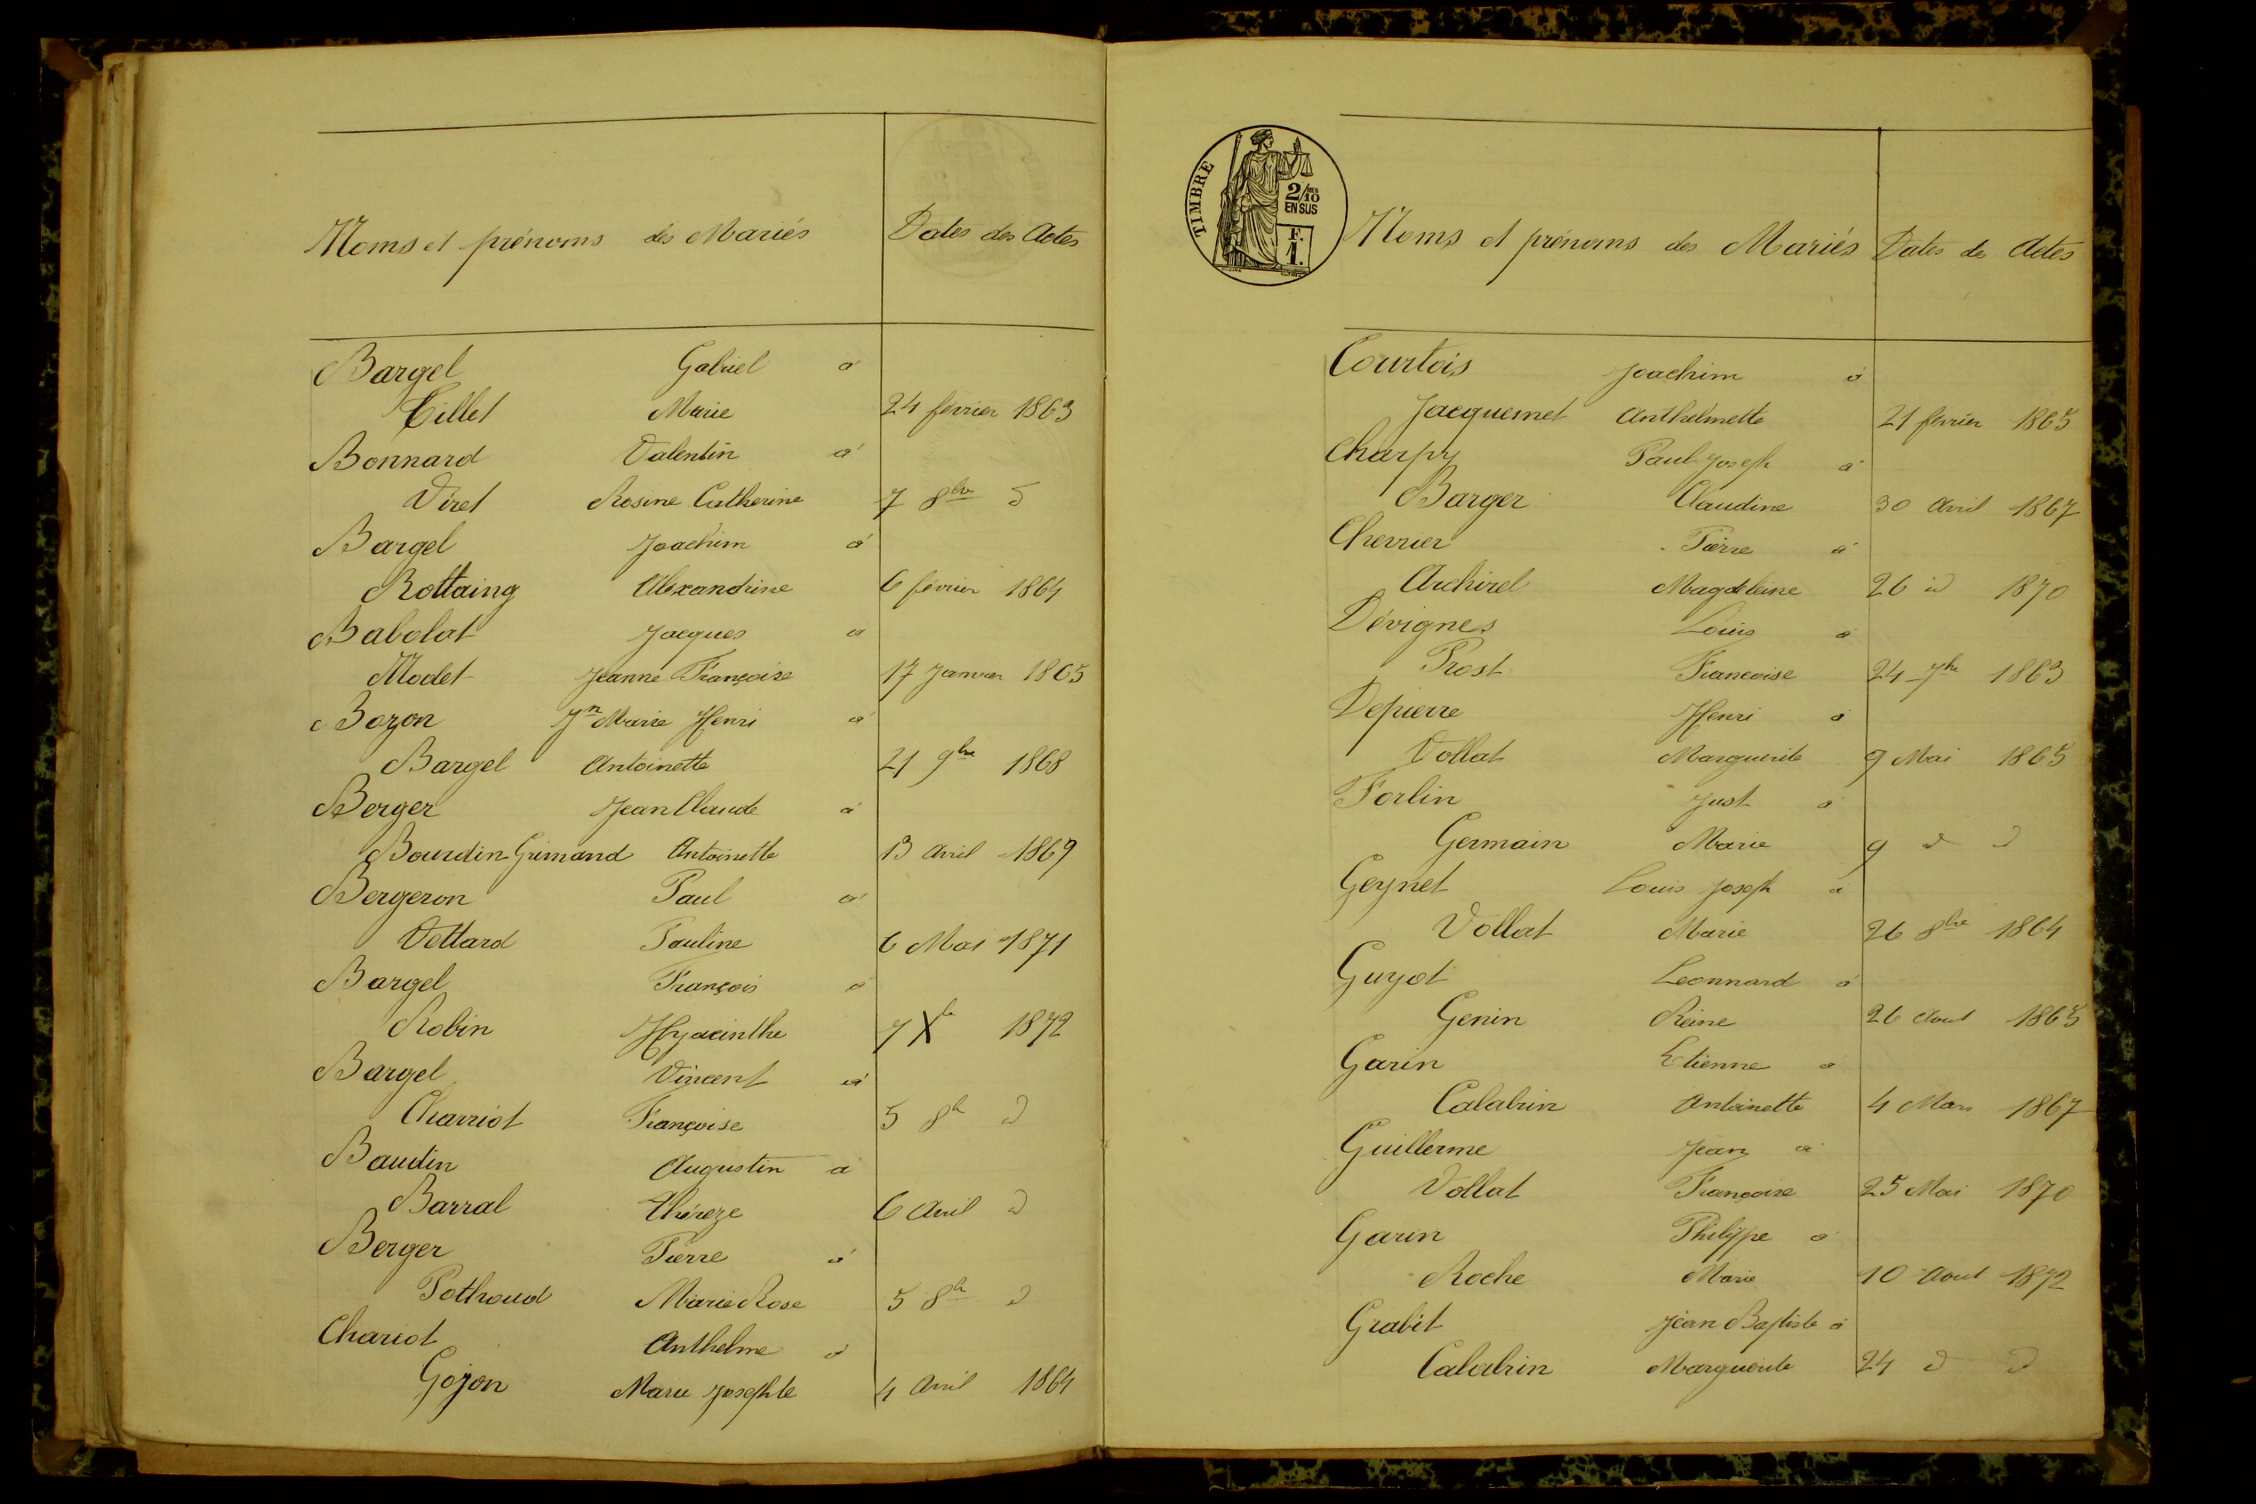 Noms et prénoms des Mariés Dates des Actes
Bargel Gabriel à
Tillet Marie 24 fevrier 1863
Bonnard Valentin à
Viret Rosine Catherine 7 8bre d
Bargel Joachim à
Rottaing Alexandrine 6 février 1864
Babolat Jacques à
Modet Jeanne Françoise 17 Janvier 1865
Bozon Jn Marie Henri à
Bargel Antoinette 21 9bre 1868
Berger Jean Claude à
Bourdin Grimand Antoinette 13 avril 1869
Bergeron Paul à
Vettard Pauline 6 Mai 1871
Bargel François à
Robin Hyacinthe 7 Xbre 1872
Bargel Vincent à
Charriot Françoise 5 8bre d
Baudin Augustin à
Barral Théreze 6 avril d
Berger Pierre à
Pothoud Marie Rose 5 8bre d
Chariot Anthelme à
Gojon Marie Josephte 4 avril 1864
TIMBRE
2/10
EN SUS
F.
1.
Noms et prénoms des Mariés Dates des Actes
Courtois Joachim à
Jacquemet Anthelmette 21 février 1865
Charpy Paul Joseph à
Barger Claudine 30 avril 1867
Chevrier Pierre à
Archirel Magdeleine 26 id 1870
Dévignes Louis à
Prost Francoise 24 7bre 1863
Depierre Henri à
Vollat Marguerite 9 Mai 1865
Forlin Just à
Germain Marie 9 d d
Geynet Louis Joseph à
Vollat Marie 26 8bre 1864
Guyot Leonnard à
Genin Reine 26 Aout 1865
Garin Etienne à
Calabrin Antoinette 4 Mars 1867
Guillerme Jean à
Vollat Françoise 25 Mai 1870
Garin Philippe à
Roche Marie 10 Aout 1872
Grabit Jean Baptiste à
Calabrin Marguerite 24 d d